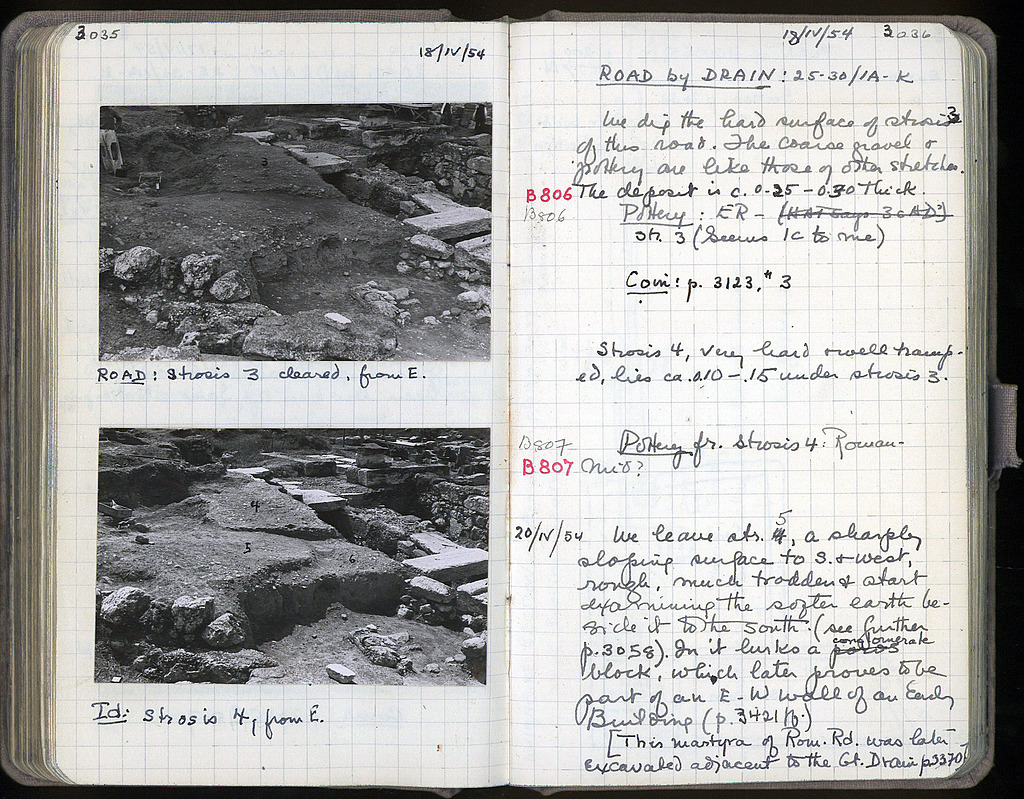 3035
18/IV/54
3
ROAD: Strosis 3 cleared, from E.
4
5
6
Id: Strosis 4, from E.
18/IV/54 3036
ROAD by DRAIN: 25-30/IA-K
We dig the hard surface of strosis 3
of this road. The coarse gravel &
pottery are like those of other stretches.
B806 The deposit is c. 0.25 - 0.30 thick.
B806 Pottery: ER - (HAT says 3c AD?)
Str. 3 (Seems 1c to me)
Coin: p. 3123, #3
Strosis 4, very hard & well tramp-
ed, lies ca. 0.10 - .15 under strosis 3.
B807 Pottery fr. Strosis 4: Roman-
B807 Mid?
20/IV/54 We leave str. 5, a sharply
sloping surface to S. & west,
rough, much trodden & start
examining the softer earth be-
side it to the south. (see further
p. 3058). In it lurks a conglomerate
block, which later proves to be
part of an E-W wall of an Early
Building (p. 3421 ff.)
[This martyra of Rom. Rd. was later
excavated adjacent to the Gt. Drain p3370